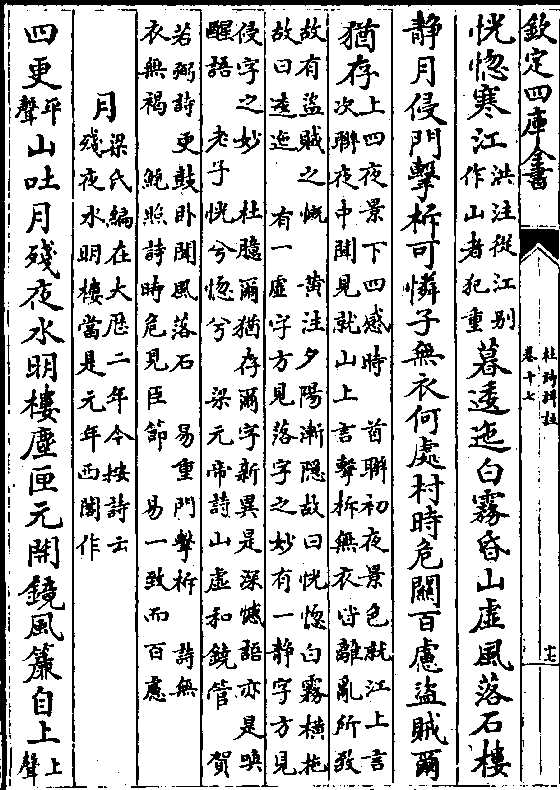 欽定四庫全書
杜詩詳註
卷十七
十七
恍惚寒江洪注從江别作山者犯重暮逶迤白霧昏山虛風落石樓
静月侵門擊柝可憐子無衣何處村時危關百慮盜賊爾
猶存上四夜景下四感時 首聯初夜景色就江上言
次聯夜中聞見就山上言聲柝無衣皆離亂所致
故有盜賊之慨 黄注夕陽漸隱故曰恍惚白霧横拖
故曰逶迤 有一虛字方見落字之妙有一静字方見
侵字之妙 杜臆爾猶存爾字新異是深憾語亦是喚
醒語 老子恍兮惚兮 梁元帝詩山虛和鏡管 賀
若弼詩更鼓卧聞風落石 易重門擊柝 詩無
衣無褐 鮑照詩時危見臣節 易一致而百慮
月梁氏編在大厯二年今按詩云
殘夜水明樓當是元年西閣作
四更平聲山吐月殘夜水明樓塵匣元開鏡風簾自上上聲